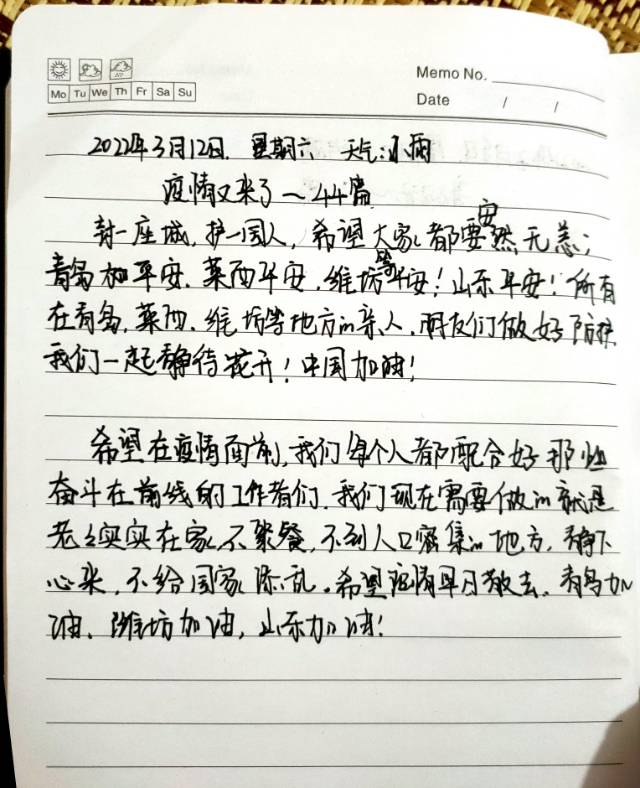 Memo No.
Mo Tu We Th Fr Sa Su
Date / /
2022年3月12日. 星期六 天气:小雨
疫情又来了～44篇
封一座城,护一国人,希望大家都要安然无恙;
青岛加平安.莱西平安.维坊等平安!山东平安!所有
在青岛.莱西.维坊等地方的亲人.朋友们做好防护
我们一起静待花开!中国加油!
希望在疫情面前,我们每个人都配合好那些
奋斗在前线的工作者们.我们现在需要做的就是
老老实实在家不聚餐,不到人口密集的地方,静下
心来,不给国家添乱.希望疫情早日散去.青岛加
油.潍坊加油,山东加油!